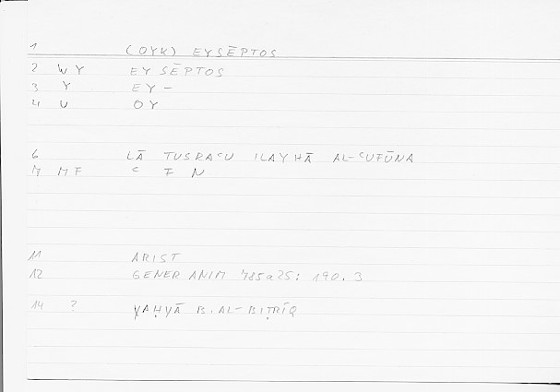 1 (OYK) EYSĒPTOS
2 WY EYSĒPTOS
3 Y EY-
4 U OY
6 LĀ TUSRAʿU ILAYHĀ AL-ʿUFŪNA
7 MF ʿFN
11 ARIST
12 GENER ANIM 785a25: 190.3
14 ? YAḤYĀ B. AL-BIṬRĪQ